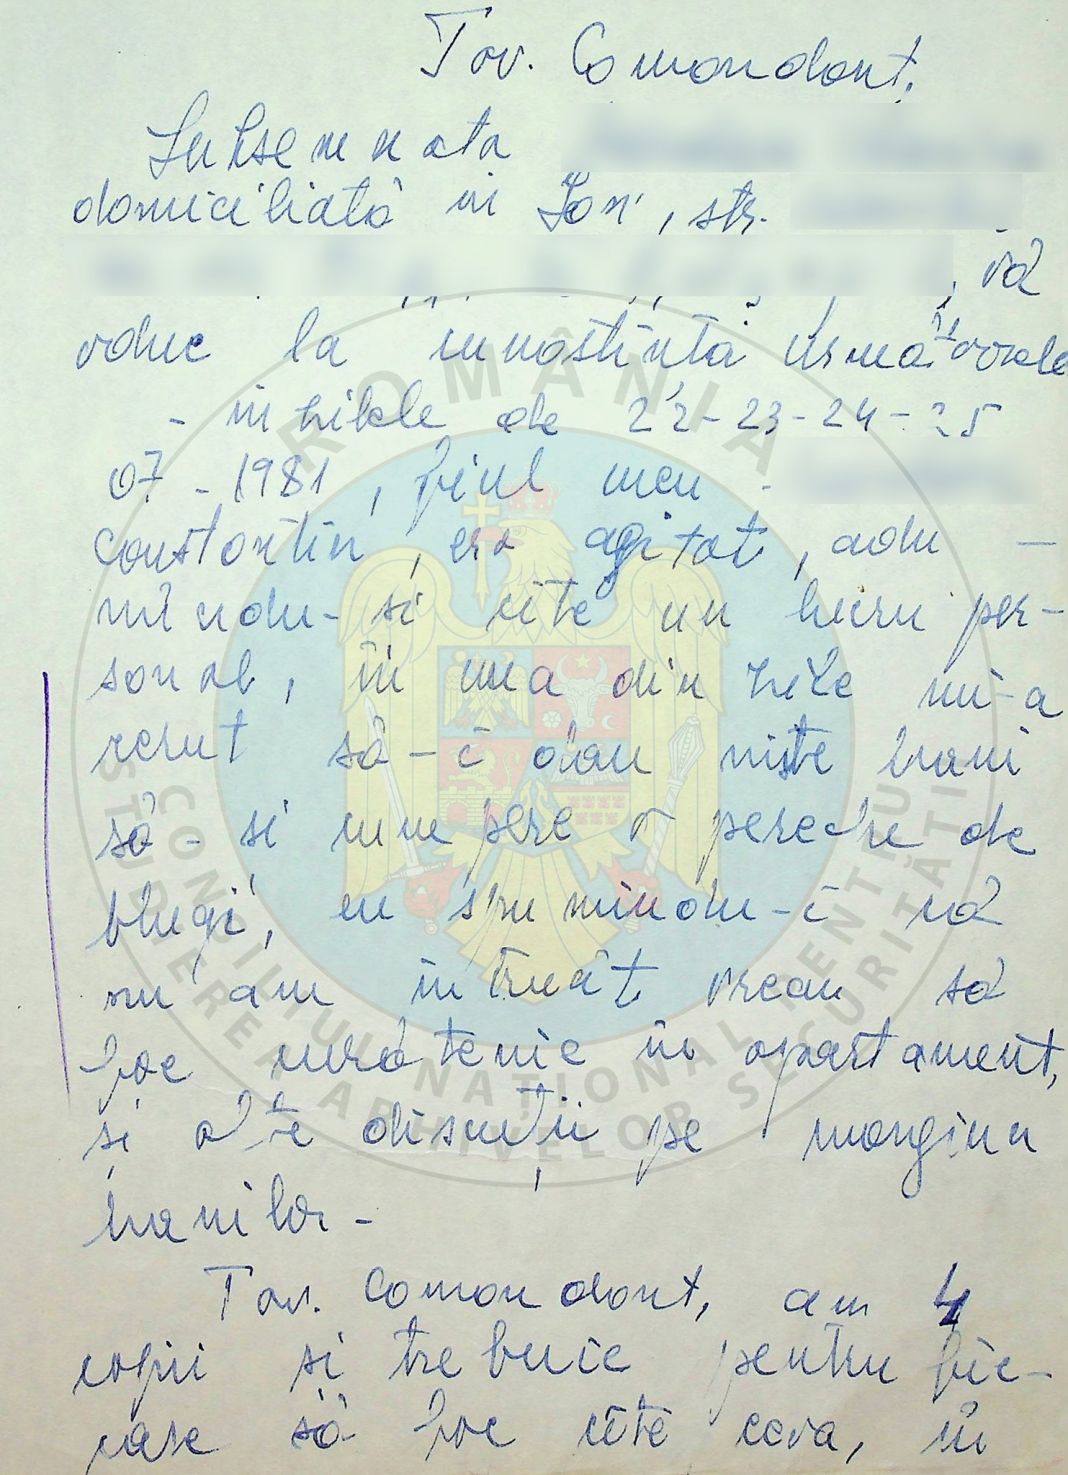 Tov. Comandant,
Subsemnata
domiciliată in Iași, str.
, vă
aduc la cunoștință următoarele
- in zilele de 22-23-24-25
07-1981, fiul meu -
Constantin, era agitat, adu-
nîndu-si cîte un lucru per-
sonal, în una din zile mi-a
cerut să-i dau niste bani
să-si cumpere o pereche de
blugi, eu spunindu-i că
nu am intrucât vreau să
fac curătenie în apartament,
si alte discuții pe marginea
banilor-
Tov. Comandant, am 4
copii si trebuie pentru fie-
care să fac cîte ceva, în
ROMÂNIA
CONSILIUL NAȚIONAL PENTRU
STUDIEREA ARHIVELOR SECURITĂȚII